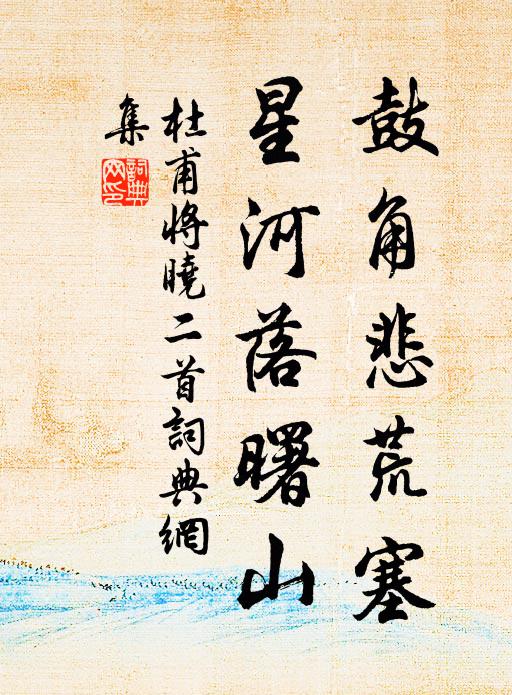 鼓角悲荒塞
星河落曙山
杜甫將曉二首詞典網
集
詞典
网印